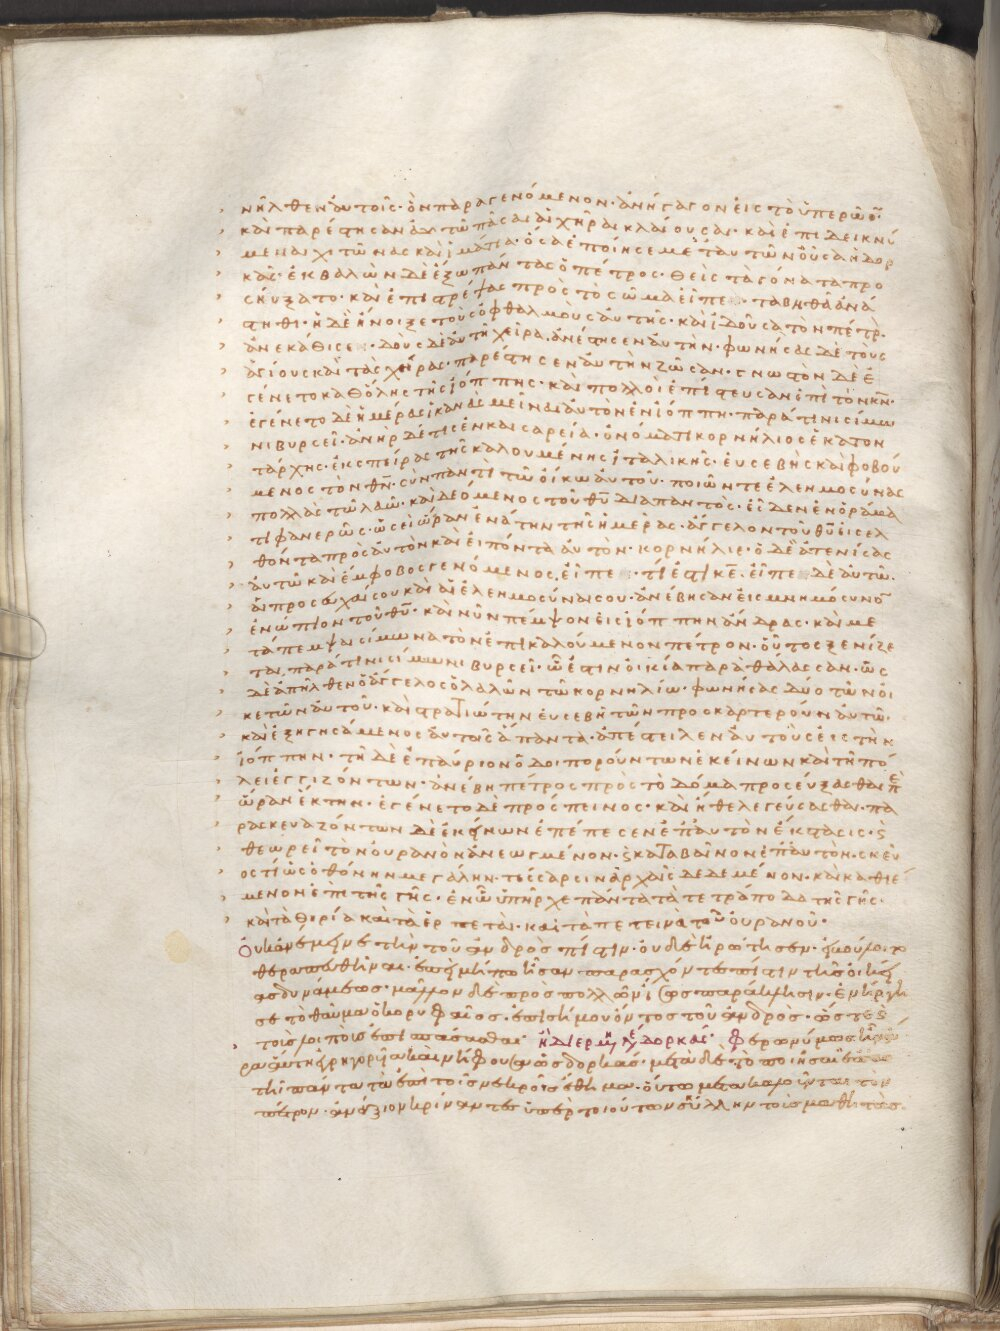 νῆλθεν αὐτοῖς· ὃν παραγενόμενον· ἀνήγαγον εἰς τὸ ὑπερῶο̄·
καὶ παρέστησαν αὐτῶ πᾶσαι αἱ χῆραι κλαίουσαι· καὶ ἐπιδεικνύ
μεναι χιτῶνας καὶ ἱμάτια· ὅσα ἐποίησε μετ' αὐτῶν οὖσα ἡ δορ
κάς· ἐκβαλὼν δὲ ἔξω πάντας ὁ πέτρος· θεὶς τὰ γόνατα προ
σηύξατο· καὶ ἐπιστρέψας πρὸς τὸ σῶμα εἶπε· ταβηθὰ ἀνά
στηθι· ἡ δὲ ἤνοιξε τοὺς ὀφθαλμοὺς αὐτῆς· καὶ ἰδοῦσα τὸν πέτρ.
ἀνεκάθισε· δοὺς δὲ αὐτῆ χεῖρα, ἀνέστησεν αὐτήν· φωνήσας δὲ τοὺς
ἁγίους καὶ τὰς χήρας· παρέστησεν αὐτὴν ζῶσαν· γνωστὸν δὲ ἐ
γένετο καθόλης τῆς ἰόππης· καὶ πολλοὶ ἐπίστευσαν ἐπὶ τὸν κν̄·
ἐγένετο δὲ ἡμέρας ἱκανὰς μεῖναι αὐτὸν ἐν ἰόππη· παρά τινι σίμω
νι βυρσεῖ· ἀνὴρ δέ τις ἐν καισαρεία· ὀνόματι κορνήλιος ἑκατον
τάρχης· ἐκ σπείρας τῆς καλουμένης ἰταλικῆς· εὐσεβὴς καὶ φοβού
μενος τὸν θν̄· σὺν παντὶ τῶ οἴκω αὐτοῦ· ποιῶν τε ἐλεημοσύνας
πολλὰς τῶ λαῶ· καὶ δεόμενος τοῦ θῡ διαπαντός· εἶδεν ἐν ὁράμα
τι φανερῶς· ὡσεὶ ὥραν ἐνάτην τῆς ἡμέρας· ἄγγελον τοῦ θῡ εἰσελ
θόντα πρὸς αὐτὸν καὶ εἰπόντα αὐτόν· κορνήλιε· ὁ δὲ ἀτενίσας
αὐτῶ καὶ ἔμφοβος γενόμενος, εἶπε· τί ἐστι κε̄· εἶπε δὲ αὐτῶ.
αἱ προσευχαί σου καὶ αἱ ἐλεημοσύναι σου· ἀνέβησαν εἰς μνημόσυνο̄
ἐνώπιον τοῦ θῡ· καὶ νῦν πέμψον εἰς ἰόππην ἄνδρας· καὶ με
τάπεμψαι σίμωνα τὸν ἐπικαλούμενον πέτρον· οὗτος ξενίζε
ται, παρά τινι σίμωνι βυρσεῖ· ὧ ἐστιν οἰκία παρὰ θάλασσαν· ὡς
δὲ ἀπῆλθεν ὁ ἄγγελος ὁ λαλῶν τῶ κορνηλίω· φωνήσας δύο τῶν οἰ
κετῶν αὐτοῦ· καὶ στρατιώτην εὐσεβῆ τῶν προσκαρτερούντων αὐτῶ·
καὶ ἐξηγησάμενος αὐτοῖς ἅπαντα· ἀπέστειλεν αὐτοὺς εἰς τὴν
ἰόππην· τῆ δὲ ἐπαύριον ὁδοιπορούντων ἐκείνων καὶ τῆ πό
λει ἐγγιζόντων· ἀνέβη πέτρος πρὸς τὸ δόμα προσεύξασθαι
ὥραν ἕκτην· ἐγένετο δὲ πρόσπεινος· καὶ ἤθελε γεύσασθαι· πα
ρασκευαζόντων δὲ ἐκείνων ἐπέπεσεν ἐπ' αὐτὸν ἔκστασις· ϗ
θεωρεῖ τὸν οὐρανὸν ἀνεωγμένον· ϗ καταβαῖνον ἐπ' αὐτὸν· σκεῦ
ος τι ὡς ὀθόνην μεγάλην· τέσσαρσιν ἀρχαῖς δεδεμένον· καὶ καθιέ
μενον ἐπὶ τῆς γῆς· ἐν ὧ ὑπῆρχε πάντα τὰ τετράποδα τῆς γῆς·
καὶ τὰ θηρία καὶ τὰ ἑρπετά· καὶ τὰ πετεινὰ τοῦ οὐρανοῦ·
Οὐκ ἀνέμεινε τὴν τοῦ ἀνδρὸς πίστιν· οὐδὲ ἠρώτησεν·
θεραπευθῆναι· παρασχόντες πίστιν τῆς οἰκείας
ἀσθυνάμεως· μᾶλλον δὲ πρὸς πολλῶν
σε τὸ θαῦμα ὁ κορυφαῖος· τοῦ ἀνδρός·
ἡ διερμηνευομένη δορκάς· φερωνύμως
δορκάς· μετὰ δὲ τὸ ποιῆσαι
τῆ πάντα τὰ ἐπὶ τοῖς νεκροῖς ἔθιμα· οὕτω μετακαλοῦνται τὸν
πέτρον· ἀνάξιον κρίναντες ὑπὲρ τοιούτων τοῖς μαθητὰς.